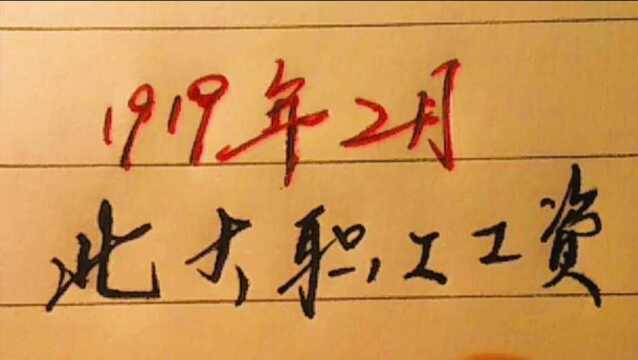 1919年2月
北大职工工资